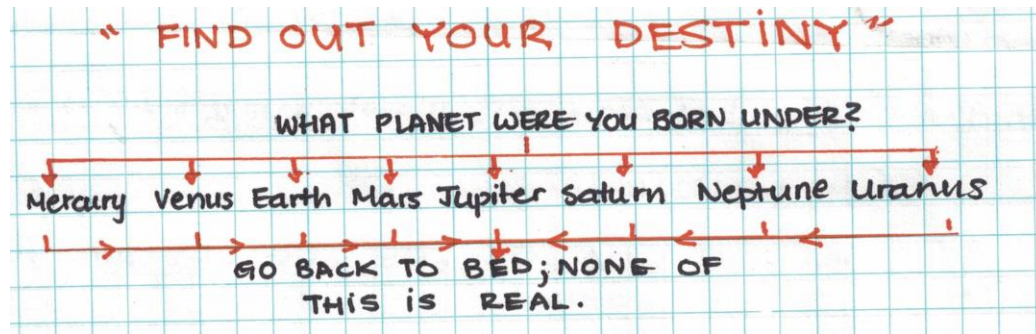 " FIND OUT YOUR DESTINY"
WHAT PLANET WERE YOU BORN UNDER?
Mercury Venus Earth Mars Jupiter Saturn Neptune Uranus
GO BACK TO BED; NONE OF
THIS is REAL.